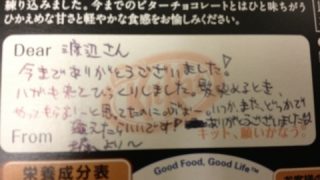 練り込みました。今までのビターチョコレートとはひと味ちがう
ひかえめな甘さと軽やかな食感をお愉しみください。
Dear 渡辺さん
今までありがとうございました!
来てびっくりしました。髪染めるとき、
やってもらおーと思ってたのにーぶぅー。いつか、また、どっかで
会えたらいいです! ありがとうございました
From より〜
キット、願いかなう。
Good Food, Good Life™
栄養成分表